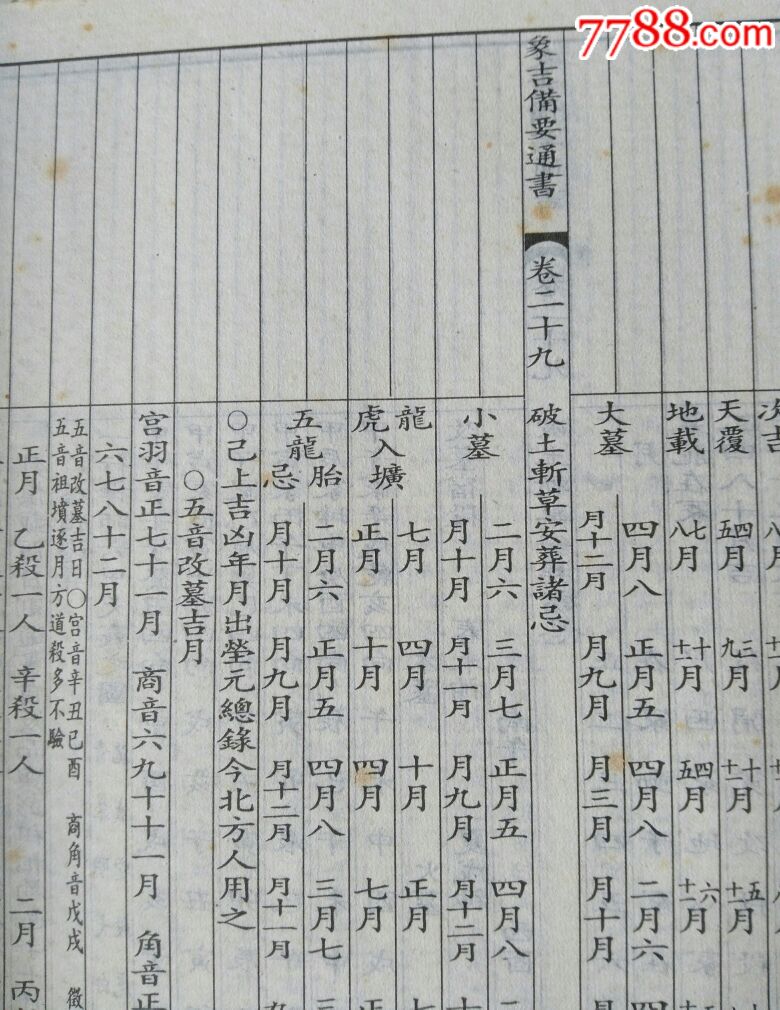 7788.com
次吉
天覆 四五月 三九月 十十二月 五十一月
地載 七八月 十十一月 四五月 六十二月
大墓
四月八 正月五 四月八 二月六
月十二月 月九月 月三月 月十月
象吉備要通書 卷二十九 破土斬草安葬諸忌
小墓
二月六 三月七 正月五 四月八
月十月 月十一月 月九月 月十二月
龍虎入壙
七月 四月 十月 正月
正月 十月 四月 七月
五龍胎忌
二月六 正月五 四月八 三月七
月十月 月九月 月十二月 月十一月
○己上吉凶年月出塋元總錄今北方人用之
○五音改墓吉月
宫羽音正七十一月 商音六九十十一月 角音正
六七八十二月
五音改墓吉日○宫音辛丑巳酉 商角音戊戌 徵
五音祖墳逐月方道殺多不驗
正月 乙殺一人 辛殺一人 二月 丙